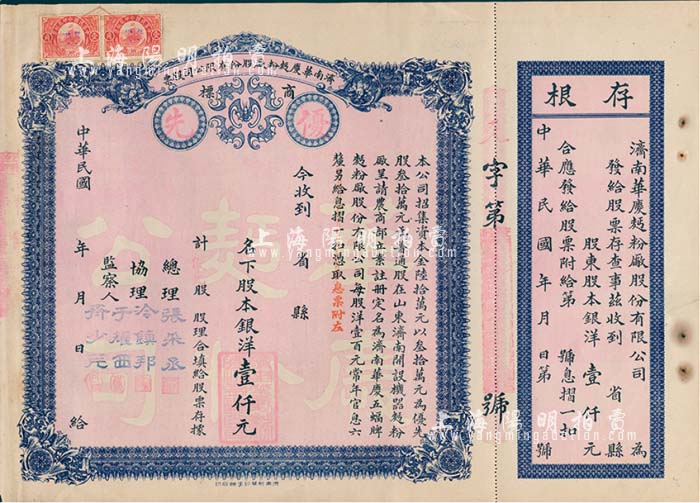 存根
濟南華慶麪粉廠股份有限公司 為
發給股票存查事茲收到 省 縣
股東股本銀洋 壹仟元
合應發給股票附給第 號息摺一扣
中華民國 年 月 日第 號
字第 號
濟南華慶麪粉廠股份有限公司股票
商標
優先
本公司招集資本金陸拾萬元以叁拾萬元為優先
股叁拾萬元為普通股在山東濟南開設機器麪粉
廠呈請農商部立案註冊定名為濟南華慶五蝠牌
麪粉廠股份有限公司每股洋壹百元常年官息六
釐另給息摺憑摺取息票附左
今收到 省 縣
名下股本銀洋壹仟元
計 股 股理合填給股票存據
總理 張采丞
協理 冷鎮邦
于耀西
監察人
中華民國 年 月 日 給
麪
公司
上海陽明拍賣
www.yangmingauction.com